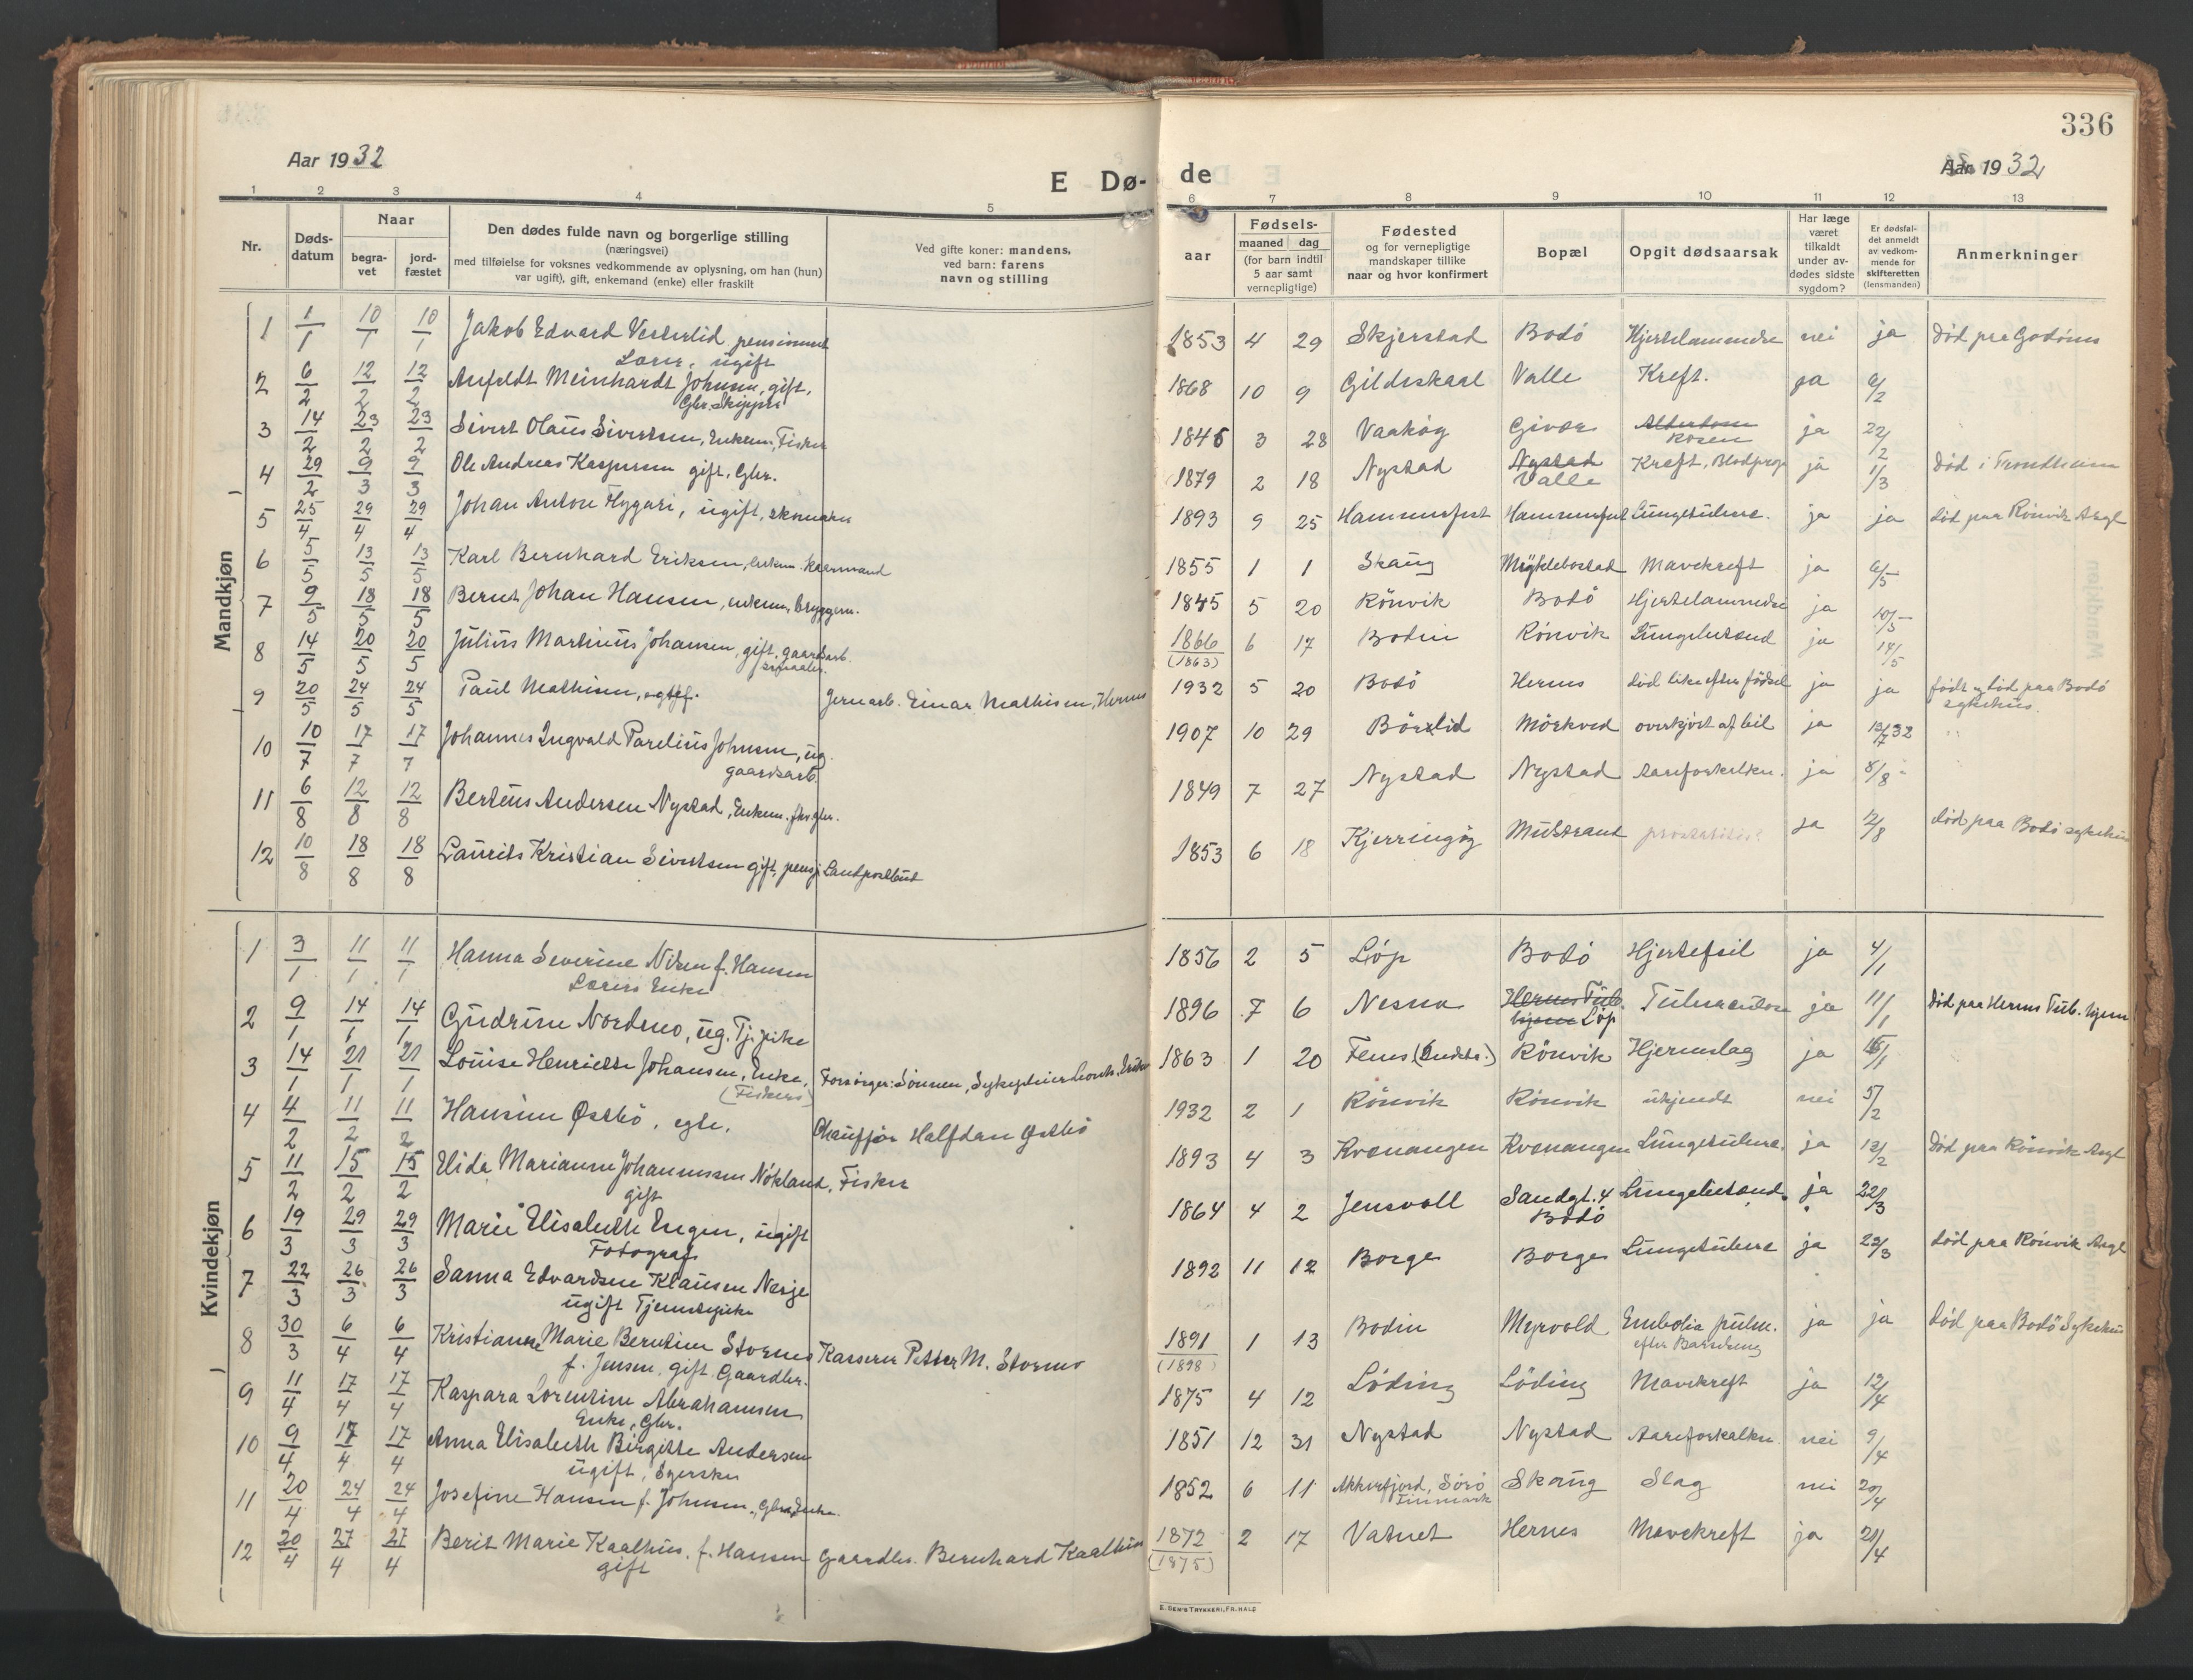 336
Aar 1932
E Dø-
de
Aar 1932
1 2 3 4 5 6 7 8 9 10 11 12 13
Nr.
Døds-
datum
Naar
begra-
vet
jord-
fæstet
Den dødes fulde navn og borgerlige stilling
(næringsvei)
med tilføielse for voksnes vedkommende av oplysning, om han (hun)
var ugift), gift, enkemand (enke) eller fraskilt
Ved gifte koner: mandens,
ved barn: farens
navn og stilling
aar
Fødsels-
maaned dag
(for barn indtil
5 aar samt
vernepligtige)
Fødested
og for vernepligtige
mandskaper tillike
naar og hvor konfirmert
Bopæl
Opgit dødsaarsak
Har læge
været
tilkaldt
under av-
dødes sidste
sygdom?
Er dødsfal-
det anmeldt
av vedkom-
mende for
skifteretten
(lensmanden)
Anmerkninger
Mandkjøn
1 1/1 10/1 10/1 Jakob Edvard Vesterlid pensionert 1853 4 29 Skjerstad Bodö Hjertelammelse nei ja Död paa Godönes
Lærer, ugift
2 6/2 12/2 12/2 Anfeldt Meinhardt Johnsen, gift, 1868 10 9 Gildeskaal Valle Kreft. ja 6/2
Gbr. Skipper
3 14/2 23/2 23/2 Sivert Olaus Sivertsen, Enkem, Fisker 1846 3 28 Givær Alderdom ja 22/2
Rosen
4 29/2 9/3 9/3 Ole Andreas Kaspersen gift, Gbr. 1879 2 18 Nystad Nystad Kreft, Blodprop ja 1/3 Död i Trondheim
Valle
5 25/4 29/4 29/4 Johan Anton Flygari, ugift, skomaker 1893 9 25 Hammerfest Hammerfest Lungetuberc. ja ja död paa Rönvik Asyl
6 5/5 13/5 13/5 Karl Bernhard Eriksen, Enkem. Kaarmand 1855 1 1 Skaug Myklebostad Mavekreft ja 6/5
7 9/5 18/5 18/5 Bernt Johan Hansen, enkem, bryggem. 1845 5 20 Rönvik Bodö Hjertelammelse ja 10/5
8 14/5 20/5 20/5 Julius Martinus Johansen, gift, gaardsarb. 1866 6 17 Bodin Rönvik Lungebetænd ja 14/5
(1863)
9 20/5 24/5 24/5 Paul Mathisen, egtef. Jernarb. Einar Mathisen, Hernes 1932 5 20 Bodö Hernes död like efter födsel ja ja födt og död paa Bodö
sykehus.
10 10/7 17/7 17/7 Johannes Ingvald Parelius Johnsen, ug. 1907 10 29 Börelid Mörkved overkjört af bil ja 13/7 32
gaardsarb.
11 6/8 12/8 12/8 Berteus Andersen Nystad, Enkem. fhv gbr. 1849 7 27 Nystad Nystad Aareforkalkn. ja 8/8
12 10/8 18/8 18/8 Laurits Kristian Sivertsen gift, pensj. Landpostbud 1853 6 18 Kjerringöy Mulstrand prostatitis? ja 12/8 död paa Bodö sykehus
Kvindekjøn
1 3/1 11/1 11/1 Hanna Severine Nilsen f. Hansen 1856 2 5 Löp Bodö Hjertefeil ja 4/1
Lærers Enke
2 9/1 14/1 14/1 Gudrun Nordmo, ug. Tj.pike 1896 7 6 Nesna Hernes Tub. Tuberculose ja 11/1 Död paa Hernes Tub. hjem
hjem Löp
3 14/1 21/1 21/1 Louise Henriette Johansen, Enke, Forsörger: Sönnen, 1863 1 20 Rönvik Hjerneslag ja 15/1
(Fiskers)
4 4/2 11/2 11/2 Hansine Østbö, egte. Chaufför Halfdan Østbö 1932 2 1 Rönvik Rönvik ukjendt nei 5/2
5 11/2 15/2 15/2 Elida Marianne Johannessen Nökland, Fisker 1893 4 3 Kvænangen Kvænangen Lungetuberc. ja 12/2 Död paa Rönvik Asyl
gift
6 19/3 29/3 29/3 Marie Elisabeth Engen, ugift 1864 4 2 Jensvoll Sandgt. 4 Lungebetænd. ja 22/3
Fotograf Bodö
7 22/3 26/3 26/3 Sanna Edvardsen Klausen Nesje 1892 11 12 Borge Borge Lungetuberc ja 23/3 död paa Rönvik Asyl
ugift Tjenestepike
8 30/3 6/4 6/4 Kristianne Marie Berntine Stormo Kasserer Petter M. Stormo 1891 1 13 Bodin Myrvold Embolia pulm. ja ja Död paa Bodö Sykehus
f. Jensen, gift. Gaardbr. (1898) efter Barseleng
9 11/4 17/4 17/4 Kaspara Lorentine Abrahamsen 1875 4 12 Löding Löding Mavekreft ja 12/4
Enke, Gbr.
10 9/4 17/4 17/4 Anna Elisabeth Birgitte Andersen 1851 12 31 Nystad Nystad Aareforkalkn nei 9/4
ugift, Syerske
11 20/4 24/4 24/4 Josefine Hansen f. Johnsen, Gbr.Enke. 1852 6 11 Akkerfjord, Sörö Skaug Slag nei 20/4
Finmark
12 20/4 27/4 27/4 Berit Marie Kaalhus, f. Hansen Gaardbr. Bernhard Kaalhus 1872 2 17 Vatnet Hernes Mavekreft ja 21/4
gift (1875)
E. SEM'S TRYKKERI, FR. HALD